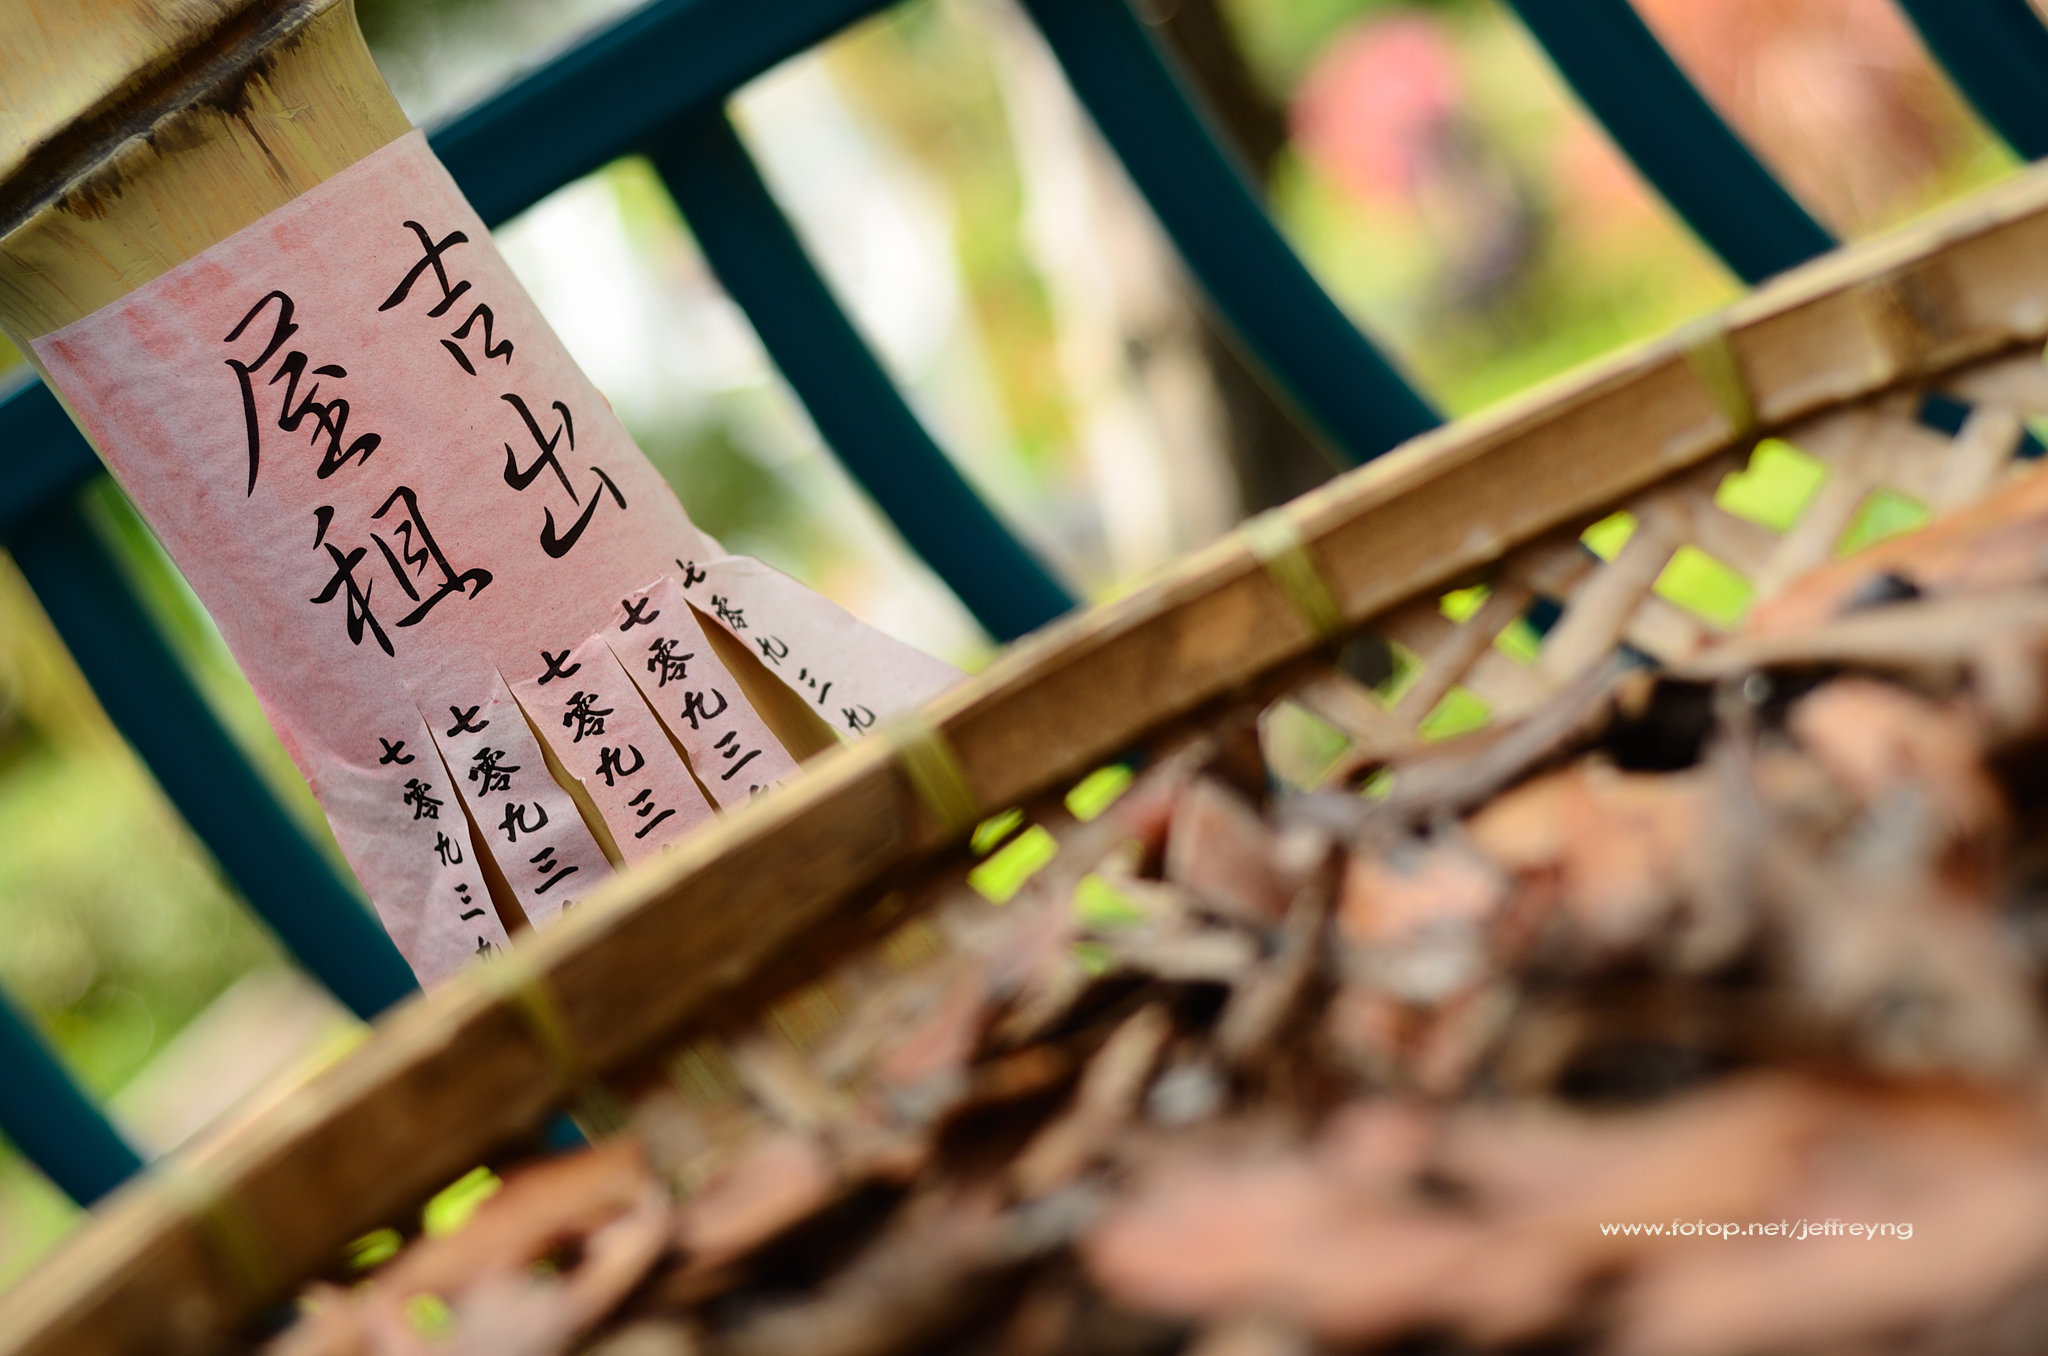 吉屋
出租
七零九三九
七零九三
七零九三
七零九三
七零九三九
www.fotop.net/jeffreyng